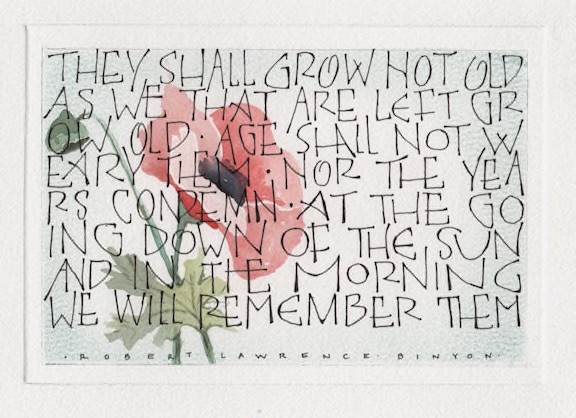 THEY SHALL GROW NOT OLD
AS WE THAT ARE LEFT GR
OW OLD · AGE SHALL NOT W
EARY THEM · NOR THE YEA
RS CONDEMN · AT THE GO
ING DOWN OF THE SUN
AND IN THE MORNING
WE WILL REMEMBER THEM
· ROBERT LAWRENCE · BINYON ·